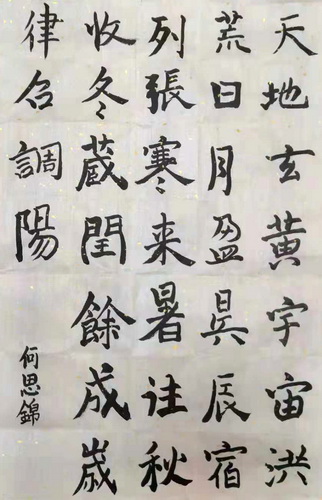 天地玄黄宇宙洪
荒日月盈昃辰宿
列張寒来暑往秋
收冬藏閏餘成歲
律吕調陽
何思錦